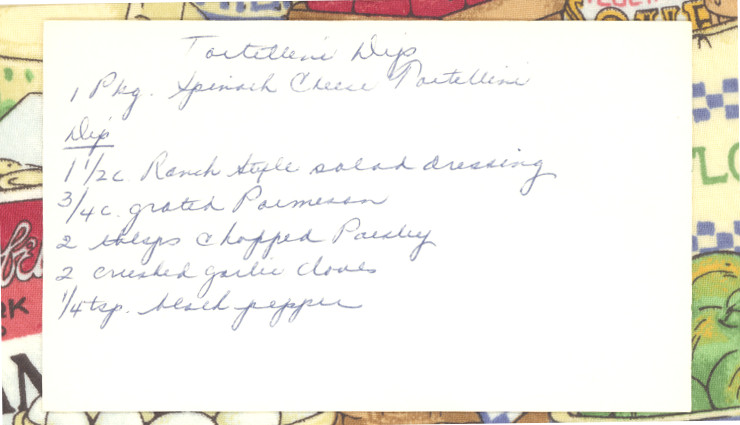 Tortellini Dip
1 Pkg. Spinach Cheese Tortellini
Dip
1 1/2 c. Ranch Style salad dressing
3/4 c. grated Parmesan
2 tblsps chopped Parsley
2 crushed garlic cloves
1/4 tsp. black pepper